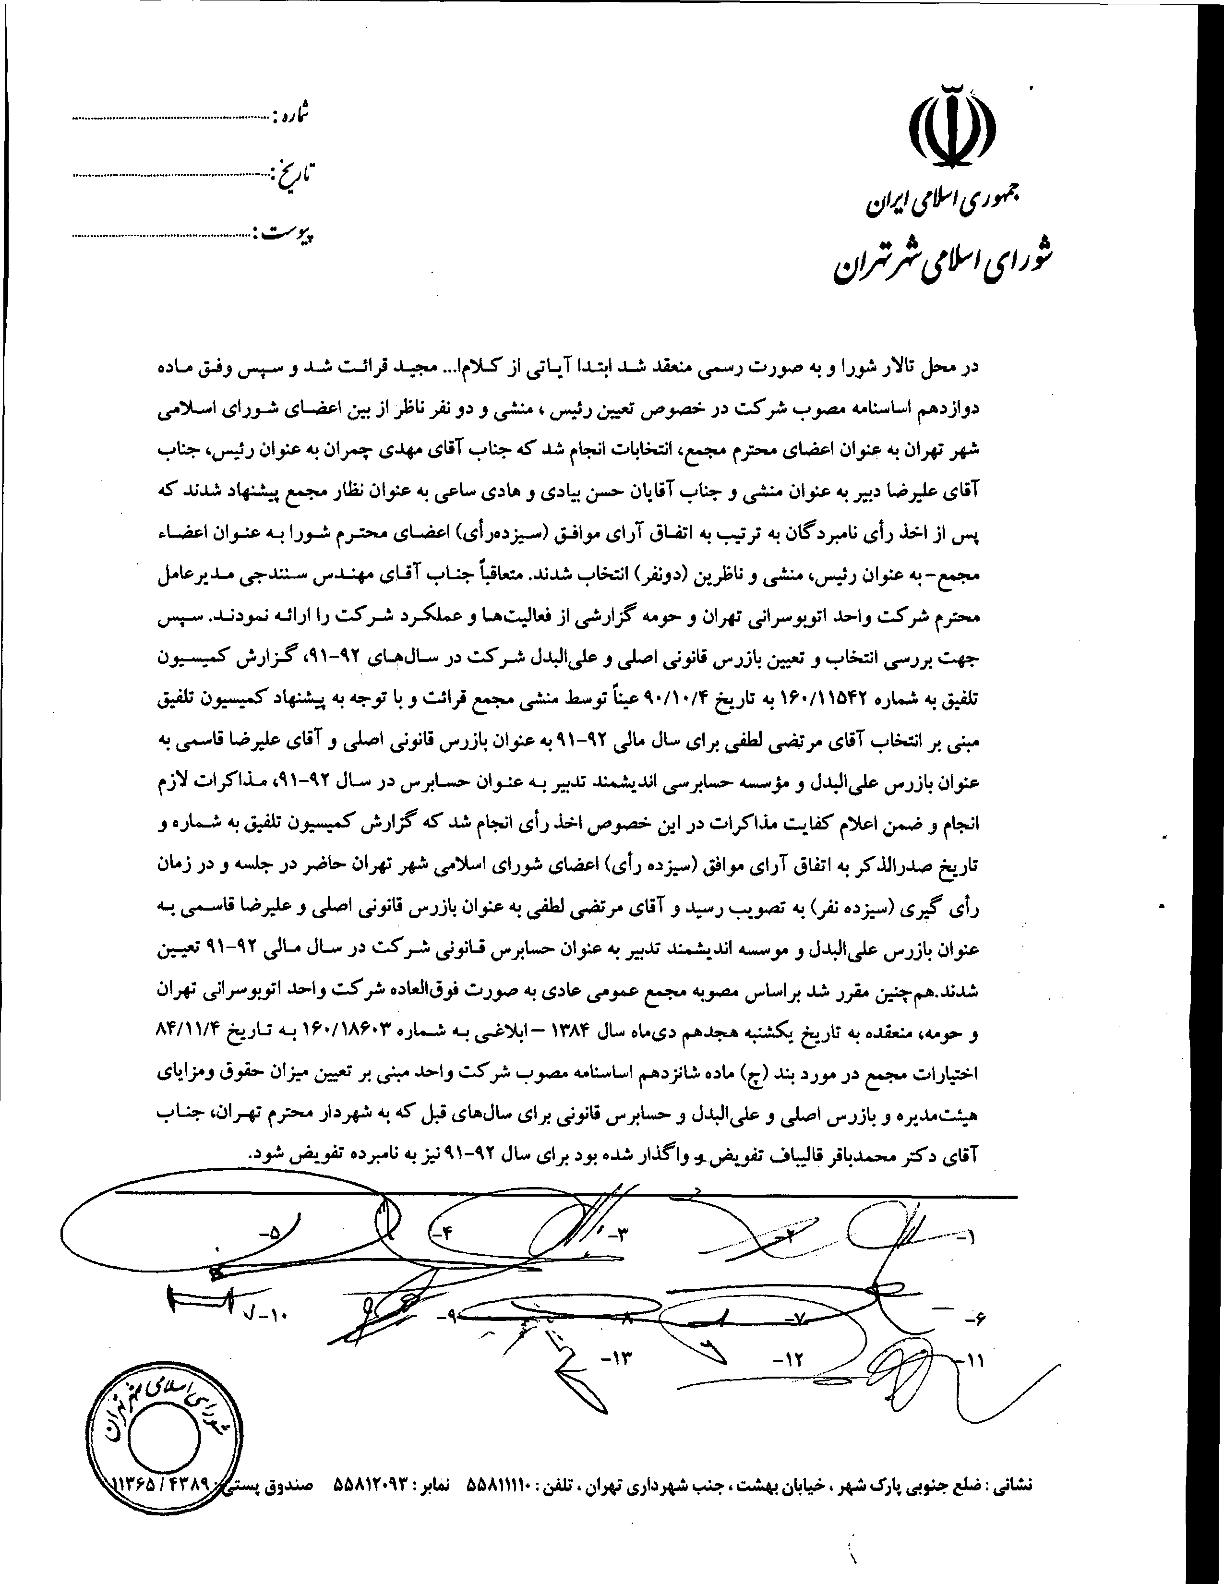 جمهوری اسلامی ایران
شورای اسلامی شهر تهران
شماره :
تاریخ :
پیوست :
در محل تالار شورا و به صورت رسمی منعقد شد ابتدا آیاتی از کلام‌ا... مجید قرائت شد و سپس وفق ماده
دوازدهم اساسنامه مصوب شرکت در خصوص تعیین رئیس ، منشی و دو نفر ناظر از بین اعضای شورای اسلامی
شهر تهران به عنوان اعضای محترم مجمع، انتخابات انجام شد که جناب آقای مهدی چمران به عنوان رئیس، جناب
آقای علیرضا دبیر به عنوان منشی و جناب آقایان حسن بیادی و هادی ساعی به عنوان نظار مجمع پیشنهاد شدند که
پس از اخذ رأی نامبردگان به ترتیب به اتفاق آرای موافق (سیزده‌رأی) اعضای محترم شورا به عنوان اعضاء
مجمع- به عنوان رئیس، منشی و ناظرین (دونفر) انتخاب شدند. متعاقباً جناب آقای مهندس سنندجی مدیرعامل
محترم شرکت واحد اتوبوسرانی تهران و حومه گزارشی از فعالیت‌ها و عملکرد شرکت را ارائه نمودند. سپس
جهت بررسی انتخاب و تعیین بازرس قانونی اصلی و علی‌البدل شرکت در سال‌های ۹۲-۹۱، گزارش کمیسیون
تلفیق به شماره ۱۶۰/۱۱۵۴۲ به تاریخ ۹۰/۱۰/۴ عیناً توسط منشی مجمع قرائت و با توجه به پیشنهاد کمیسیون تلفیق
مبنی بر انتخاب آقای مرتضی لطفی برای سال مالی ۹۲-۹۱ به عنوان بازرس قانونی اصلی و آقای علیرضا قاسمی به
عنوان بازرس علی‌البدل و مؤسسه حسابرسی اندیشمند تدبیر به عنوان حسابرس در سال ۹۲-۹۱، مذاکرات لازم
انجام و ضمن اعلام کفایت مذاکرات در این خصوص اخذ رأی انجام شد که گزارش کمیسیون تلفیق به شماره و
تاریخ صدرالذکر به اتفاق آرای موافق (سیزده رأی) اعضای شورای اسلامی شهر تهران حاضر در جلسه و در زمان
رأی گیری (سیزده نفر) به تصویب رسید و آقای مرتضی لطفی به عنوان بازرس قانونی اصلی و علیرضا قاسمی به
عنوان بازرس علی‌البدل و موسسه اندیشمند تدبیر به عنوان حسابرس قانونی شرکت در سال مالی ۹۲-۹۱ تعیین
شدند.هم‌چنین مقرر شد براساس مصوبه مجمع عمومی عادی به صورت فوق‌العاده شرکت واحد اتوبوسرانی تهران
و حومه، منعقده به تاریخ یکشنبه هجدهم دی‌ماه سال ۱۳۸۴ -ابلاغی به شماره ۱۶۰/۱۸۶۰۳ به تاریخ ۸۴/۱۱/۴
اختیارات مجمع در مورد بند (چ) ماده شانزدهم اساسنامه مصوب شرکت واحد مبنی بر تعیین میزان حقوق ومزایای
هیئت‌مدیره و بازرس اصلی و علی‌البدل و حسابرس قانونی برای سال‌های قبل که به شهردار محترم تهران، جناب
آقای دکتر محمدباقر قالیباف تفویض و واگذار شده بود برای سال ۹۲-۹۱ نیز به نامبرده تفویض شود.
۱- ۲- ۳- ۴- ۵-
۶- ۷- ۸ ۹- ۱۰-
۱۱- ۱۲- ۱۳-
شورای اسلامی شهر تهران
نشانی : ضلع جنوبی پارک شهر ، خیابان بهشت ، جنب شهرداری تهران ، تلفن : ۵۵۸۱۱۱۱۰ نمابر : ۵۵۸۱۲۰۹۳ صندوق پستی : ۱۱۳۶۵/۴۳۸۹